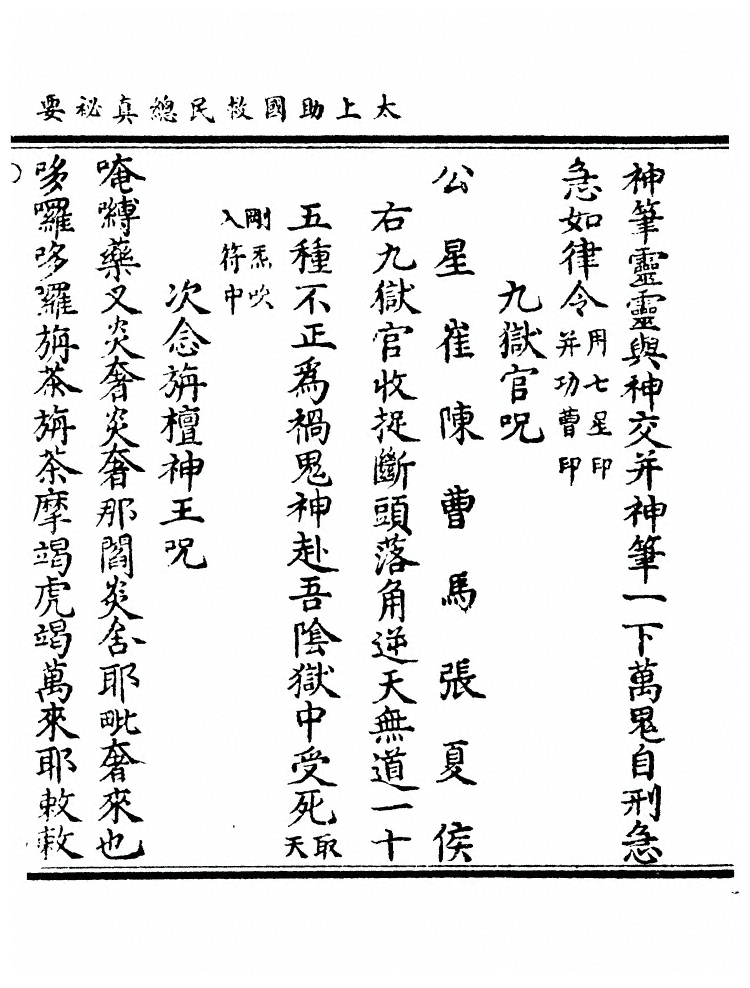 太上助國救民總真祕要
神筆靈靈與神交并神筆一下萬鬼自刑急
急如律令用七星印
并功曹印
九獄官呪
公星崔陳曹馬張夏侯
右九獄官收捉斷頭落角逆天無道一十
五種不正為禍鬼神赴吾陰獄中受死取
天
剛炁吹
入符中
次念旃檀神王呪
唵嚩藥叉炎奢炎奢那閻炎舍耶毗奢來也
哆囉哆羅旃茶旃茶摩竭虎竭萬來耶敕敕